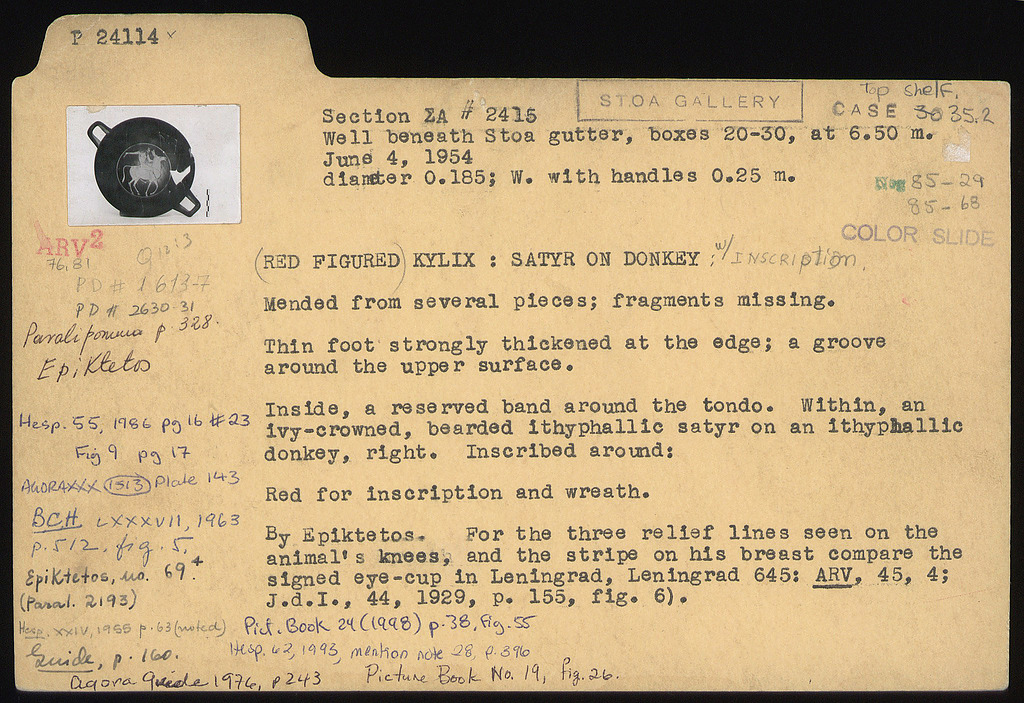 P 24114 x
STOA GALLERY
Top shelf.
CASE 3035.2
Section ΣA # 2415
Well beneath Stoa gutter, boxes 20-30, at 6.50 m.
June 4, 1954
diameter 0.185; W. with handles 0.25 m.
Neg 85-29
85-68
COLOR SLIDE
ARV²
76, 81
PD # 1613-7
PD # 2630-31
Paralipomena p. 328.
Epiktetos
(RED FIGURED) KYLIX : SATYR ON DONKEY ; w/ INSCRIPTION.
Mended from several pieces; fragments missing.
Thin foot strongly thickened at the edge; a groove
around the upper surface.
Hesp. 55, 1986 pg 16 #23
Fig 9 pg 17
AGORA XXX 1513 Plate 143
BCH LXXXVII, 1963
p. 512, fig. 5,
Epiktetos, no. 69+
(Paral. 2193)
Hesp. XXIV, 1955 p. 63 (noted)
Guide, p. 160.
Agora Guide 1976, p 243
Inside, a reserved band around the tondo. Within, an
ivy-crowned, bearded ithyphallic satyr on an ithyphallic
donkey, right. Inscribed around:
Red for inscription and wreath.
By Epiktetos. For the three relief lines seen on the
animal's knees, and the stripe on his breast compare the
signed eye-cup in Leningrad, Leningrad 645: ARV, 45, 4;
J.d.I., 44, 1929, p. 155, fig. 6).
Pict. Book 24 (1998) p. 38, Fig. 55
Hesp. 62, 1993, mention note 28, p. 396
Picture Book No. 19, fig. 26.